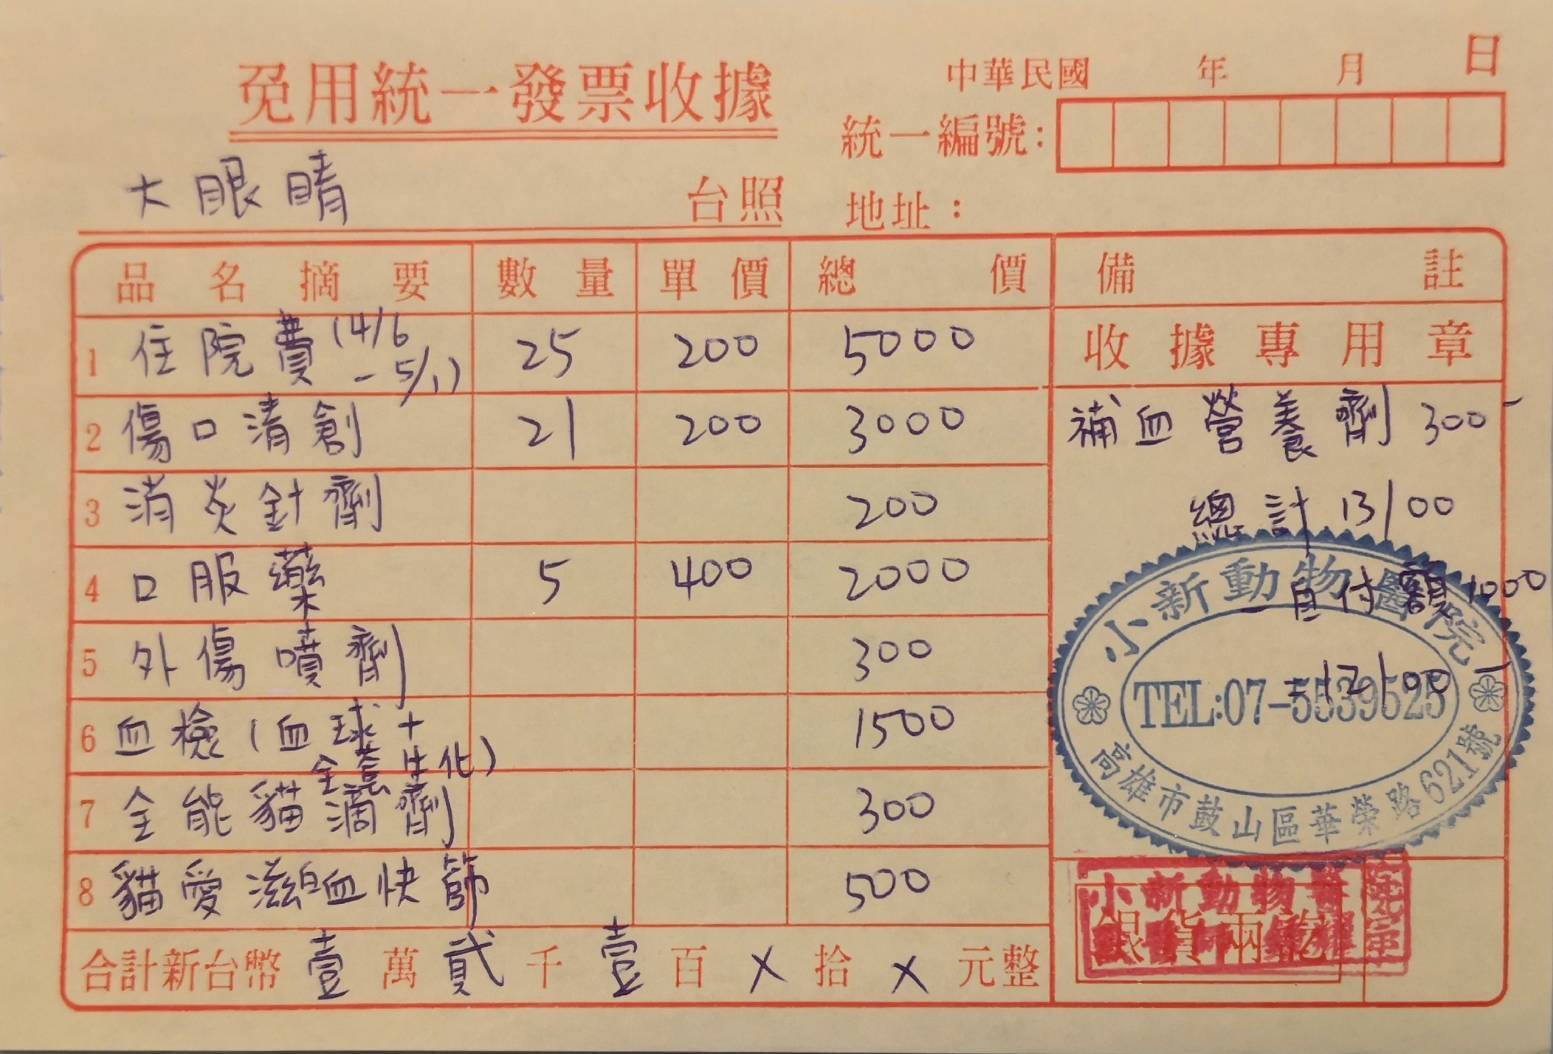 免用統一發票收據
中華民國 年 月 日
統一編號:
大眼睛 台照
地址:
品名摘要 數量 單價 總價 備註
收據專用章
1 住院費(4/6-5/1) 25 200 5000
2 傷口清創 21 200 3000
3 消炎針劑 200
4 口服藥 5 400 2000
5 外傷噴劑 300
6 血檢(血球+全套生化) 1500
7 全能貓滴劑 300
8 貓愛滋白血快篩 500
合計新台幣壹萬貳千壹百X拾X元整
補血營養劑 300-
總計 13100
-自付額 1000
=12100-
小新動物醫院
TEL:07-5539525
高雄市鼓山區華榮路621號
銀貨兩訖
小新動物醫院